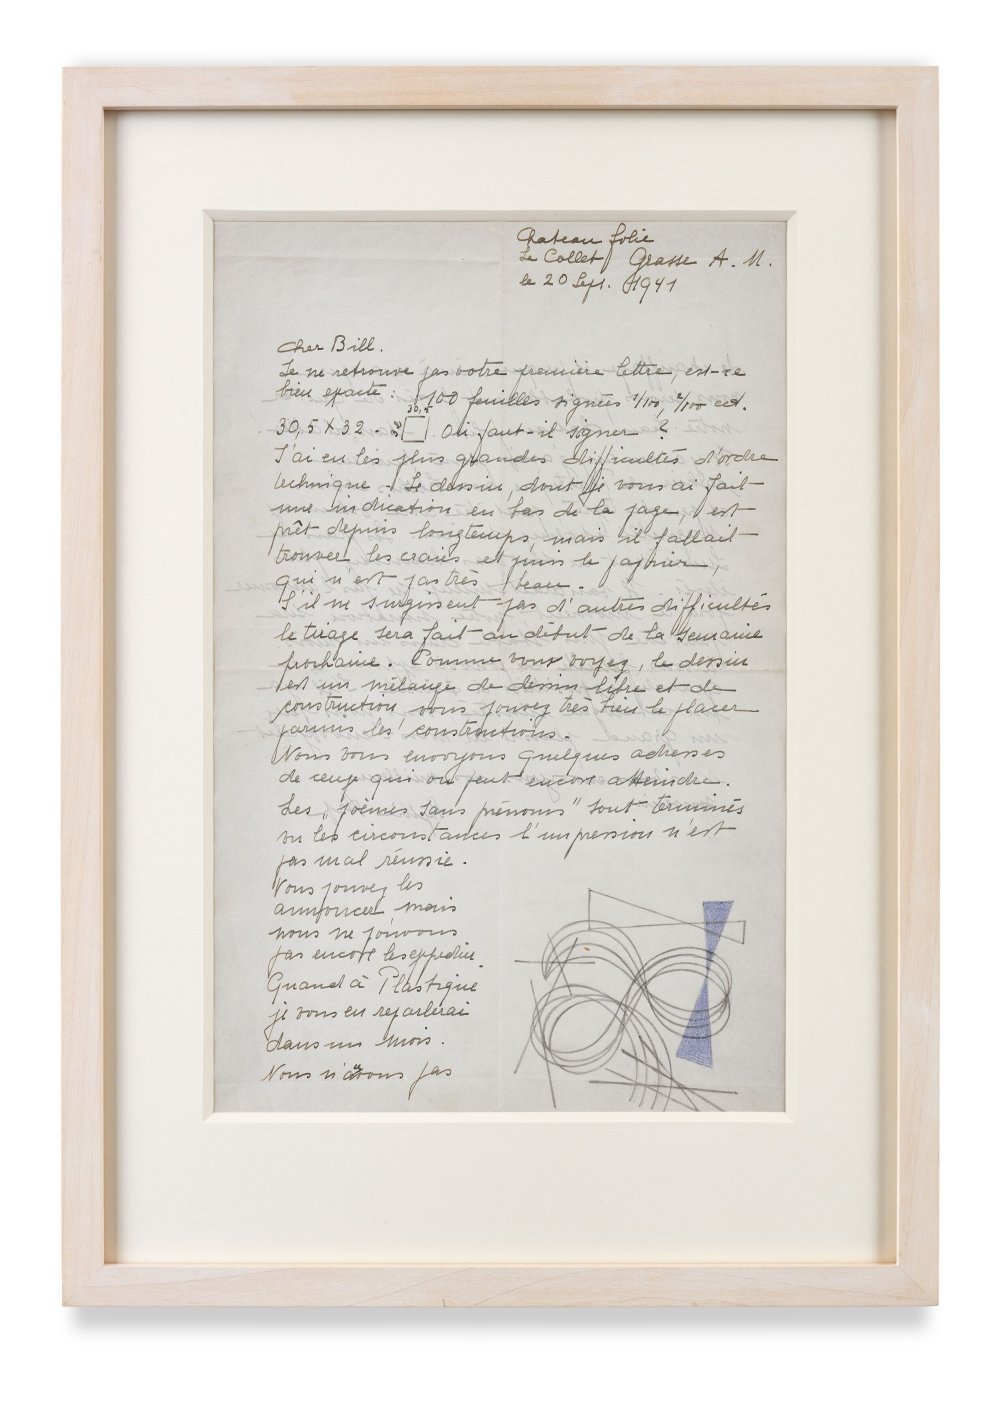 Chateau folie
Le Collet Grasse A. M.
le 20 Sept. 1941
Cher Bill.
Je ne retrouve pas votre première lettre, est-ce
bien exacte : 100 feuilles signées 1/100, 2/100 ect.
30,5
30,5 x 32. 32 Où faut-il signer ?
J'ai eu les plus grandes difficultés d'ordre
technique. Le dessin, dont je vous ai fait
une indication en bas de la page, est
prêt depuis longtemps, mais il fallait
trouver les craies et puis le papier,
qui n'est pas très beau.
S'il ne surgissent pas d'autres difficultés
le tirage sera fait au début de la semaine
prochaine. Comme vous voyez, le dessin
est un mélange de dessin libre et de
construction, vous pouvez très bien le placer
parmis les constructions.
Nous vous envoyons quelques adresses
de ceux qui on peut encore atteindre.
Les „poèmes sans prénoms" sont terminés
vu les circonstances l'impression n'est
pas mal réussie.
Vous pouvez les
annoncer mais
nous ne pouvons
pas encore les expedier.
Quand à Plastique
je vous en reparlerai
dans un mois.
Nous n'avons pas